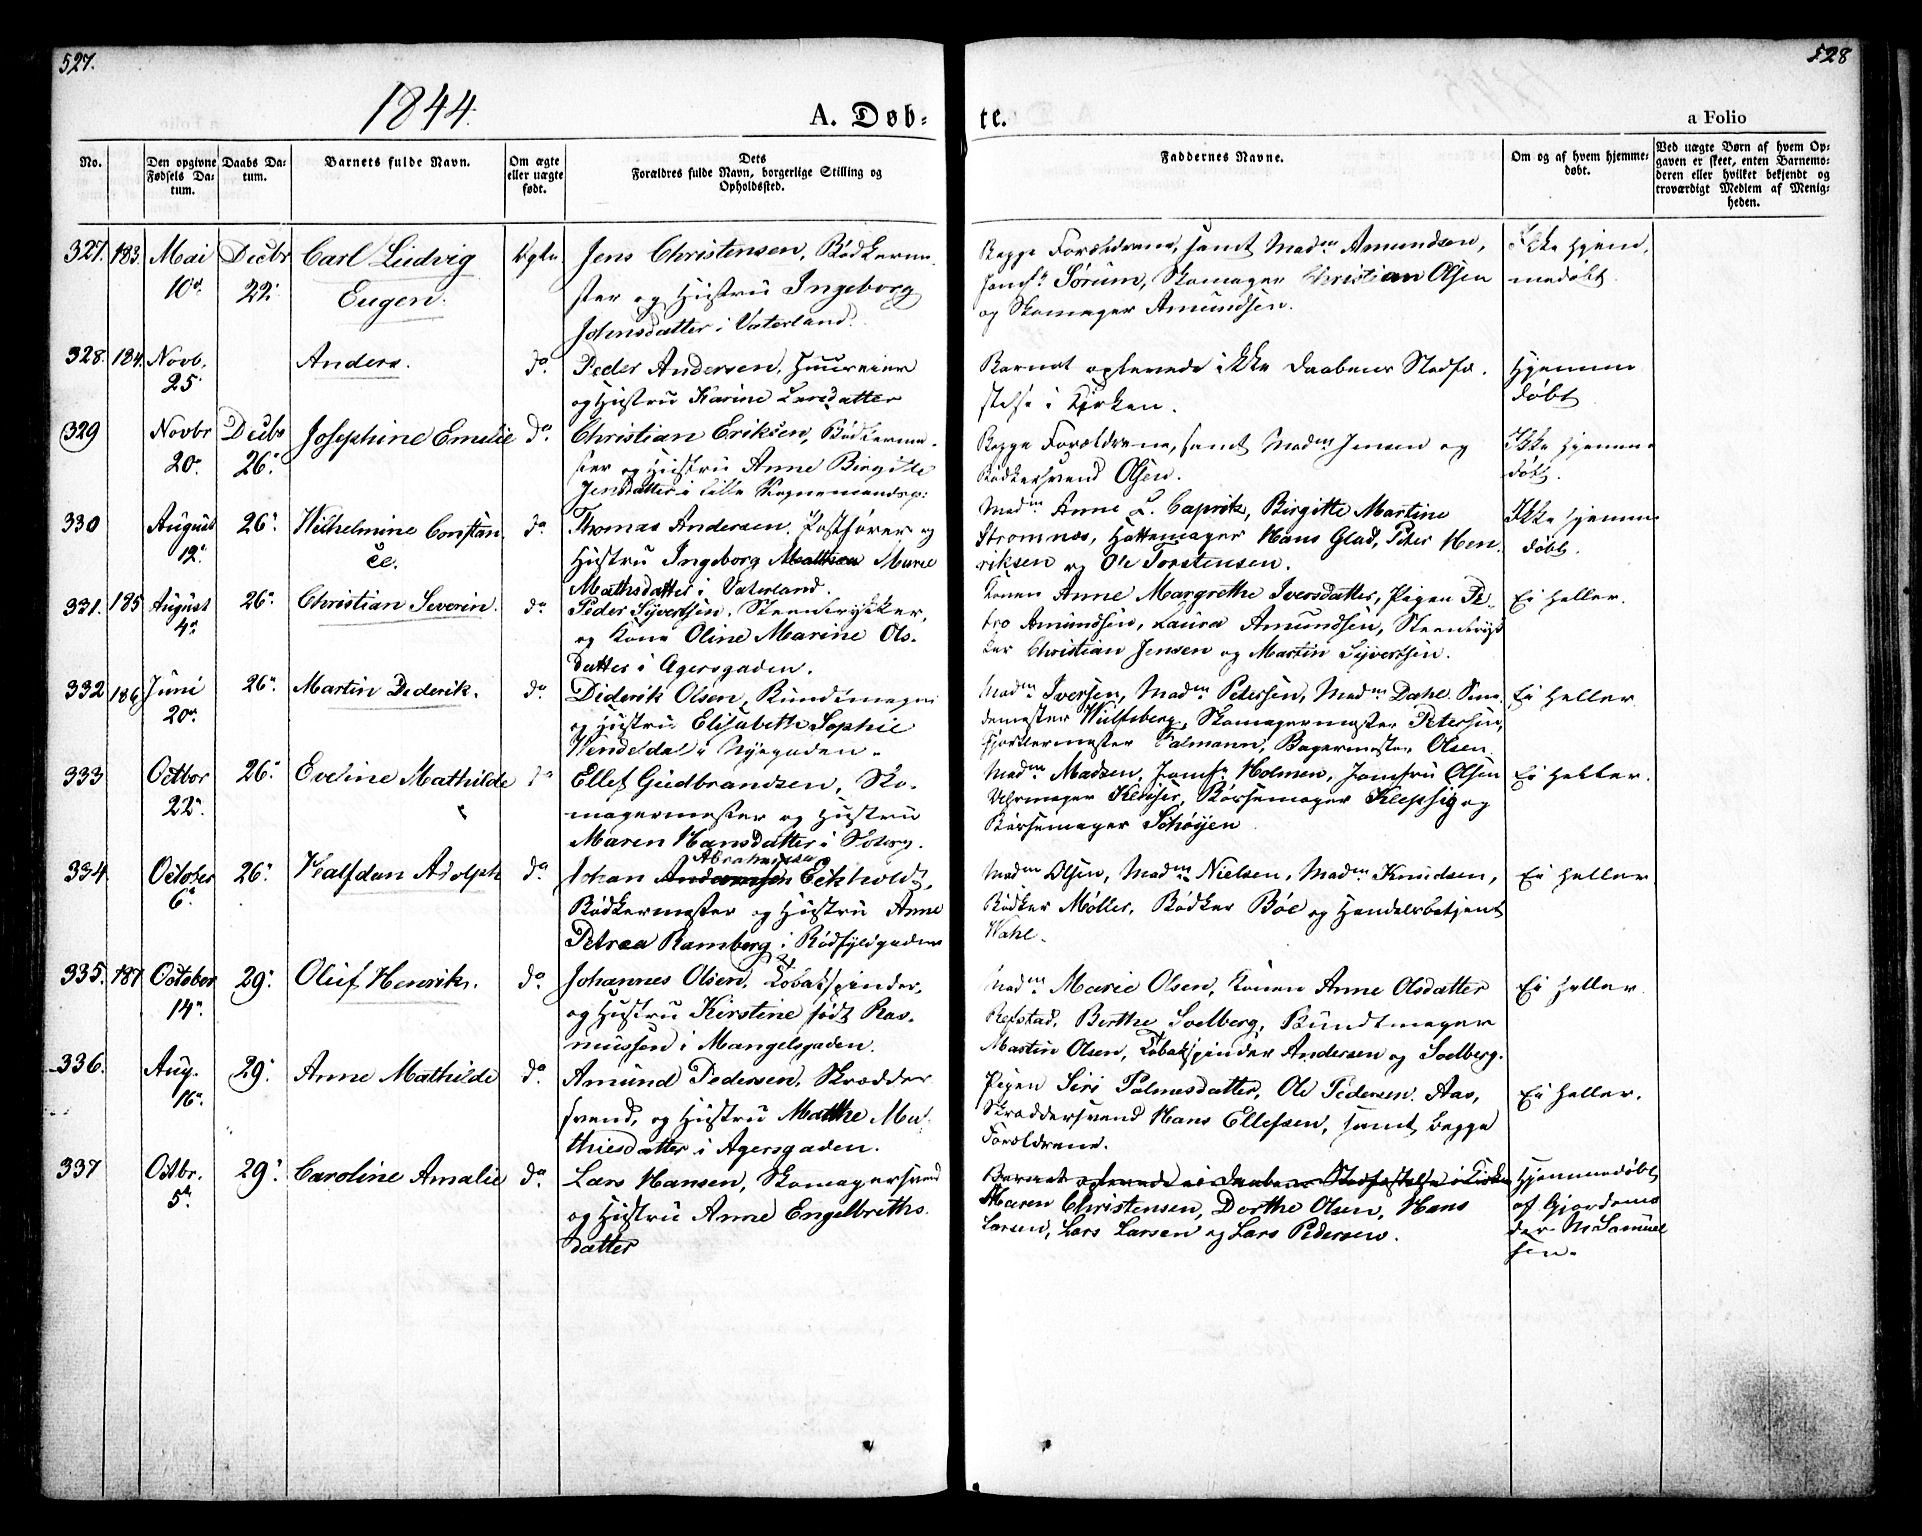 527.
528
1844.
A. Døb-
te.
a Folio
No.
Den opgivne Fødsels Da-tum.
Daabs Da-tum.
Barnets fulde Navn.
Om ægte eller uægte født.
Dets
Forældres fulde Navn, borgerlige Stilling og
Opholdssted.
Faddernes Navne.
Om og af hvem hjemme-døbt.
Ved uægte Børn af hvem Op-gaven er skeet, enten Barnemo-deren eller hvilket bekjendt og troværdigt Medlem af Menig-heden.
327. 183. Mai Decbr Carl Ludvig Ægte Jens Christensen, Bødkerme-
10de 22de Eugen. ster og Hustru Ingeborg
Johnsdatter i Vaterland.
Begge Forældrene, samt Madm Amundsen,
Jomfr Sørum, Skomager Christian Olsen
og Skomager Amundsen.
Ikke hjem-
medøbt.
328. 184. Novb. Anders. do Peder Andersen, Huuseier
25 og Hustru Karine Larsdatter
Barnet oplevede ikke Daabens Stadfæ-
stelse i Kirken.
Hjemme
døbt
329 Novbr Decbr Josephine Emelie do Christian Eriksen, Bødkerme-
20de 26de ster og Hustru Anne Birgitte
Jensdatter i Lille Vognmandsg:
Begge Forældrene, samt Madm Jensen og
Bødkersvend Olsen.
Ikke hjemme-
døbt.
330 August 26de Wilhelmine Constan- do Thomas Andersen, Postfører og
12te ce. Hustru Ingeborg Mathea Marie
Mathsdatter i Vaterland.
Madm Anne L. Caprik, Birgitte Martine
Stromnæs, Hattemager Hans Glad, Peter Hen-
riksen og Ole Torstensen.
Ikke hjemme-
døbt.
331. 185 August 26de Christian Severin. do Peder Syvertsen, Steentrykker,
4de og Kone Oline Marine Ols-
datter i Agersgaden.
Konen Anne Margrethe Iversdatter, Pigen Pe-
tro Amundsen, Laura Amundsen, Steentryk-
ker Christian Jensen og Martin Syvertsen.
Ei heller.
332 186 Juni 26de Martin Dederik. do Diderik Olsen, Bundtmager
20de og Hustru Elisabeth Sophie
Wendeldal i Nyegaden.
Madm Iversen, Madm Petersen, Madm Dahl,
demester Wulfsberg, Skomagermester Petersen,
Falmann, Bagermester Olsen.
Ei heller
333 Octbor 26de Eveline Mathilde do Ellef Gudbrandsen, Sko-
22de magermester og Hustru
Maren Hansdatter i
Madm Madsen, Jomfr Holmen, Jomfru Olsen
Uhrmager Børsemager Klepsig og
Børsemager Schøyen
Ei heller.
334 October 26de Halfdan Adolph do Johan Andersen Abrahamsen Eckholdt,
6te Bødkermester og Hustru Anne
Petrea Ramberg i Rødfyldgaden
Madm Olsen, Madm Nielsen, Madm Knudsen,
Bødker Møller, Bødker Bøe og Handelsbetjent
Wahl.
Ei heller
335. 187 October 29de Oluf Henrik. do Johannes Olsen, Tobakspinder,
14de og Hustru Kirstine født Ras-
mussen i Mangelsgaden.
Madm Marie Olsen, Konen Anne Olsdatter
Refstad, Berthe Soelberg, Bundtmager
Martin Olsen, Tobakspinder Andersen og Soelberg.
Ei heller
336. Aug. 29de Anne Mathilde do Amund Pedersen, Skrædder
16de svend, og Hustru Mathe Ma-
thiesdatter i Agersgaden.
Pigen Siri Palmesdatter, Ole Pedersen Aas,
Skræddersvend Hans Ellefsen, samt begge
Forældrene.
Ei heller.
337 Octbr. 29de Caroline Amalie do Lars Hansen, Skomagersvend
5te og Hustru Anne Engelbreths-
datter
Barnet oplevede ei Daabens Stadfæstelse i Kirken
Maren Christensen, Dorthe Olsen, Hans
Larsen, Lars Larsen og Lars Pedersen.
Hjemmedøbt
af Gjordemo
der M Samuel
sen.